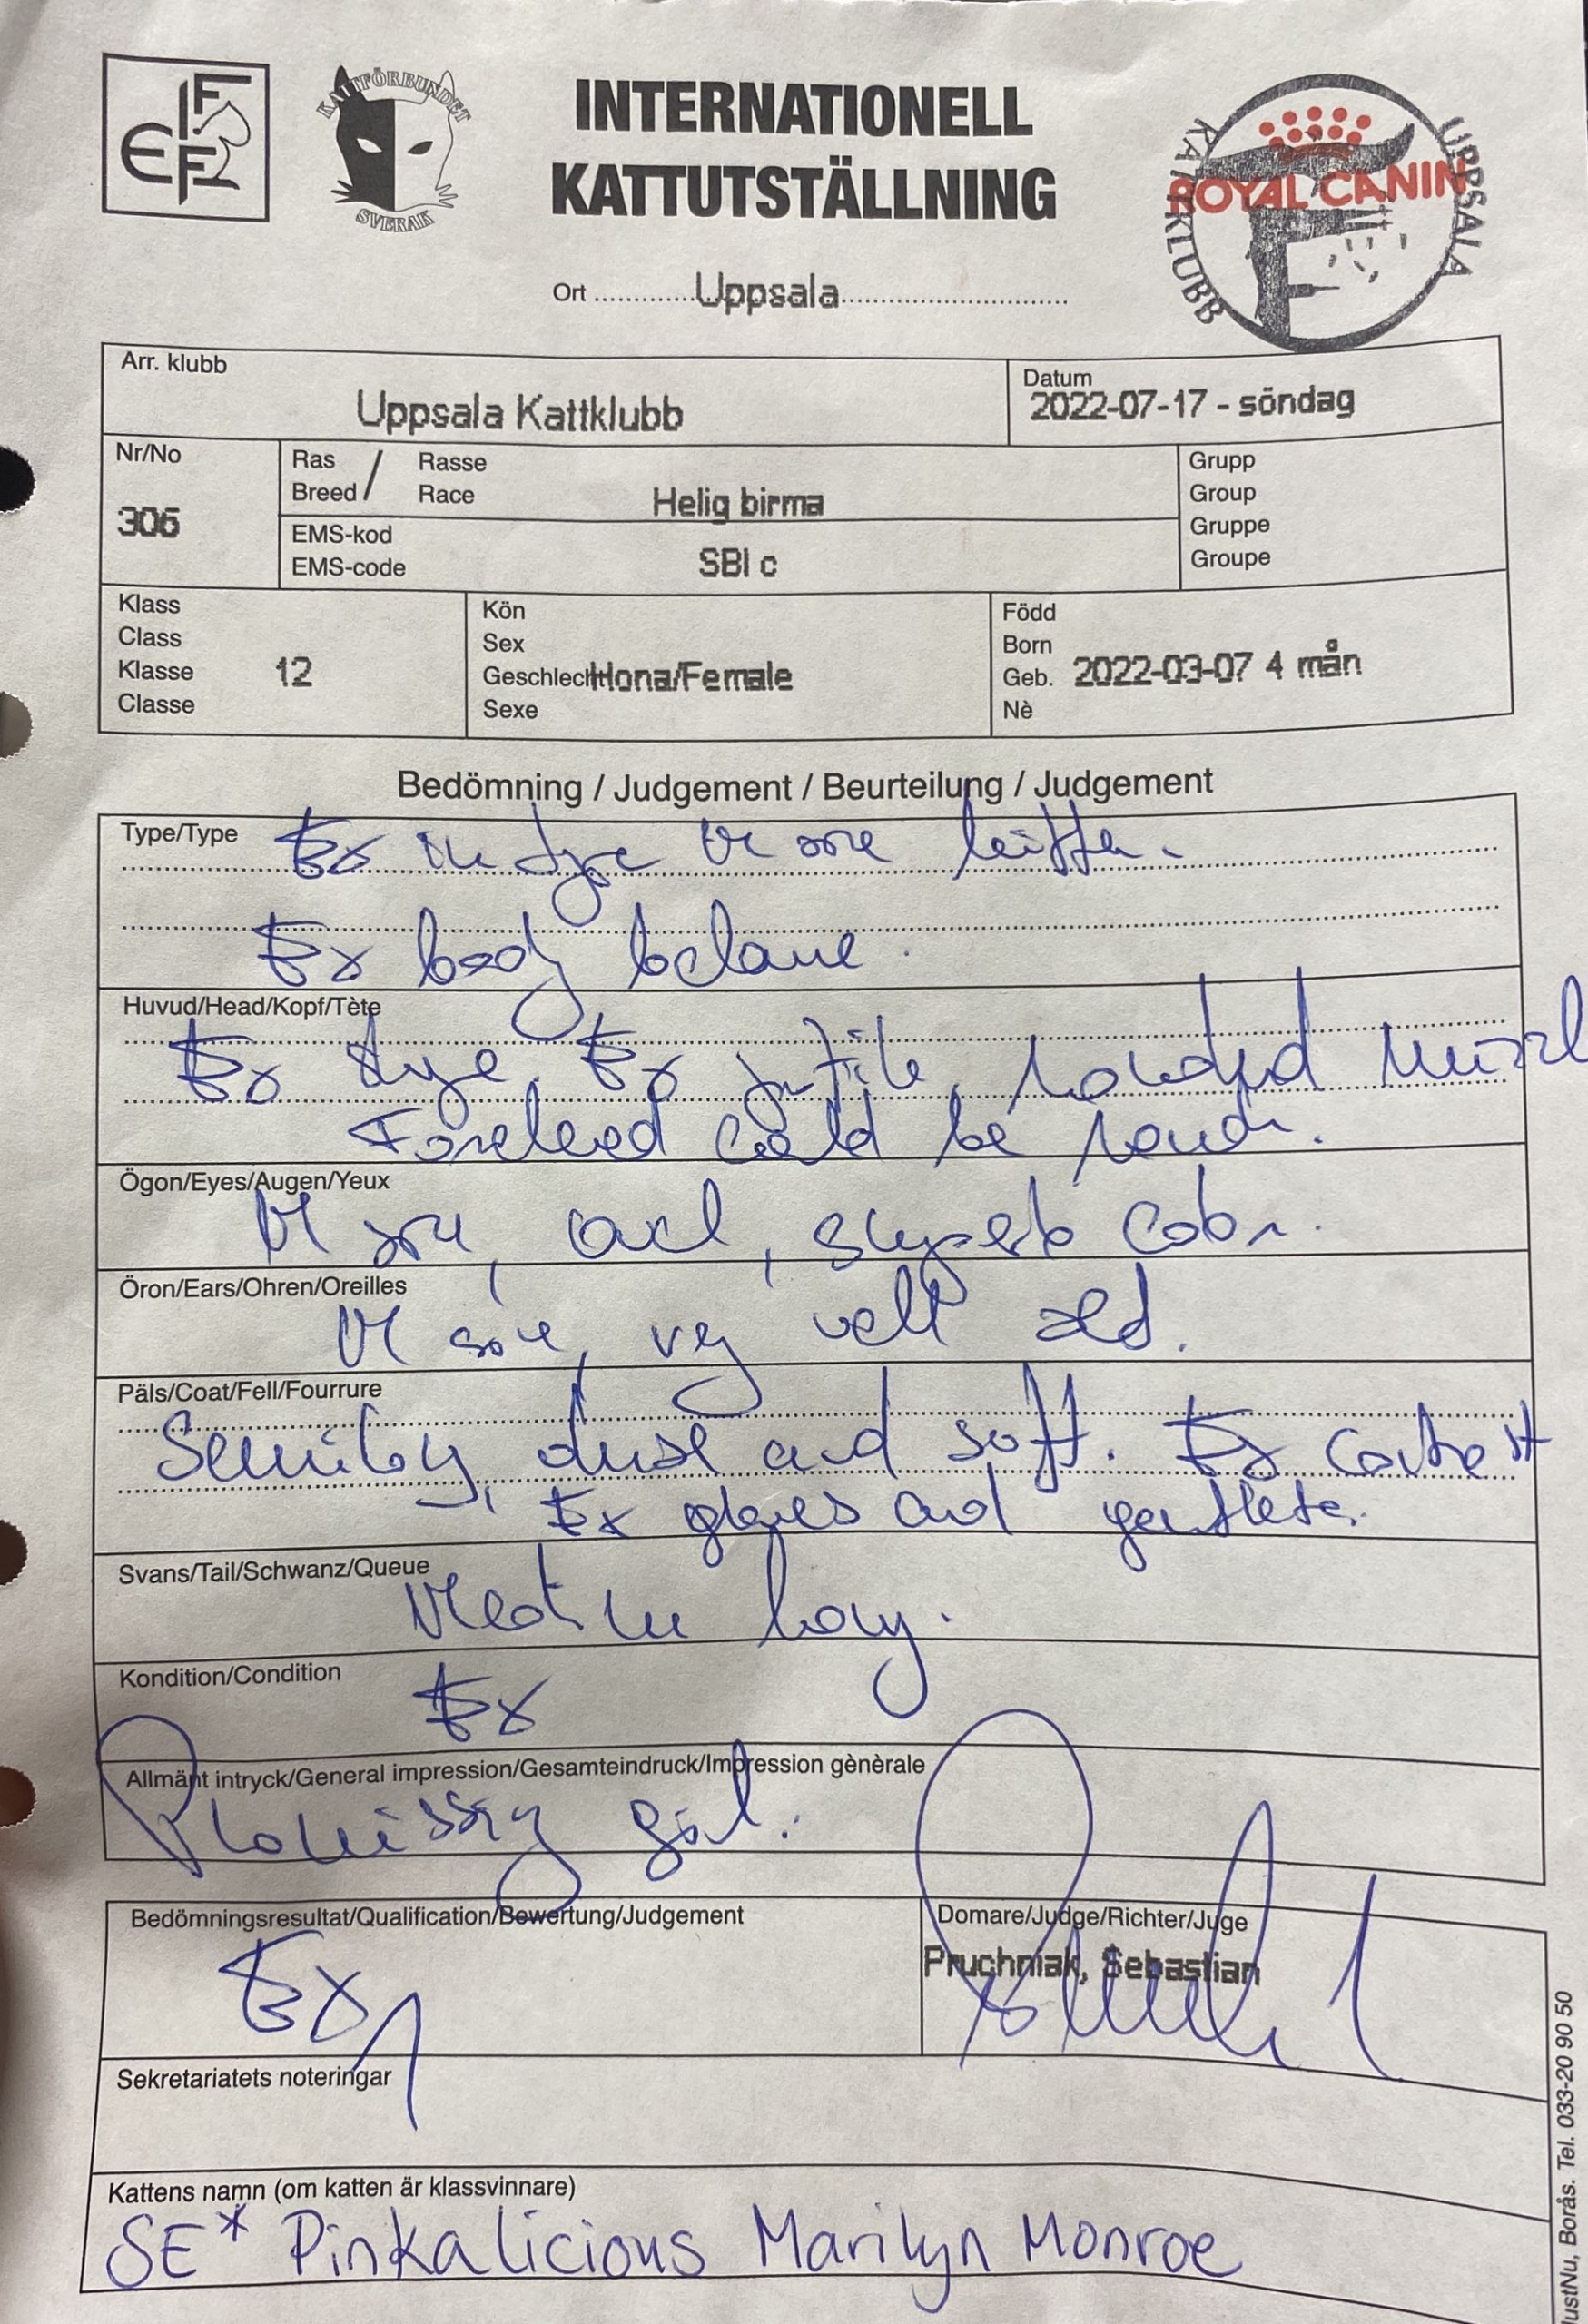 FIFE
KATTFÖRBUNDET
SVERAK
INTERNATIONELL
KATTUTSTÄLLNING
UPPSALA
KATTKLUBB
ROYAL CANIN
Ort Uppsala
Arr. klubb
Uppsala Kattklubb
Datum
2022-07-17 - söndag
Nr/No
306
Ras / Rasse
Breed / Race
Helig birma
EMS-kod
EMS-code
SBI c
Grupp
Group
Gruppe
Groupe
Klass
Class
Klasse
Classe
12
Kön
Sex
Geschlecht
Sexe
Hona/Female
Född
Born
Geb.
Nè
2022-03-07 4 mån
Bedömning / Judgement / Beurteilung / Judgement
Type/Type
Ex
Ex body balance.
Huvud/Head/Kopf/Tète
Ex Ex profile, rounded
Forehead could be
Ögon/Eyes/Augen/Yeux
M size, oval, superb color.
Öron/Ears/Ohren/Oreilles
M size, very well
Päls/Coat/Fell/Fourrure
and soft. Ex contrast
Ex gloves and
Svans/Tail/Schwanz/Queue
Medium long.
Kondition/Condition
Ex
Allmänt intryck/General impression/Gesamteindruck/Impression gènèrale
Promissing girl.
Bedömningsresultat/Qualification/Bewertung/Judgement
Ex 1
Domare/Judge/Richter/Juge
Pruchniak, Sebastian
Sekretariatets noteringar
Kattens namn (om katten är klassvinnare)
SE* Pinkalicious Marilyn Monroe
JustNu, Borås. Tel. 033-20 90 50